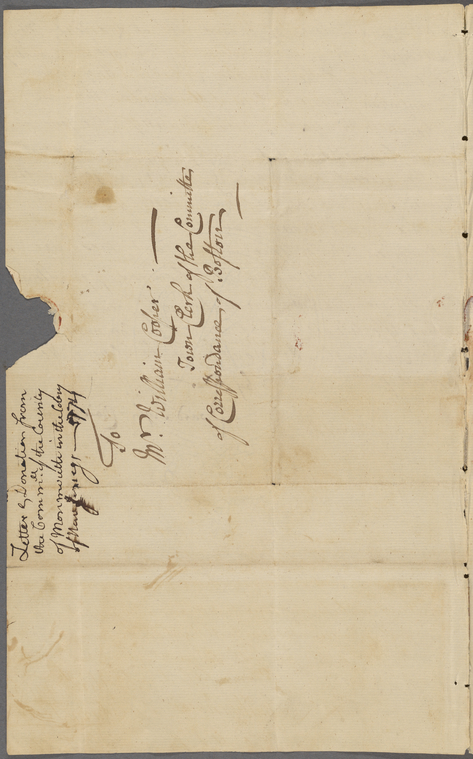 Letter & Donation from
the Comm.ee of the County
of Monmouth in the Colony
1774
To
Mr. William Cooper
Town Clerk of the Committe
of Correspondance of Boston